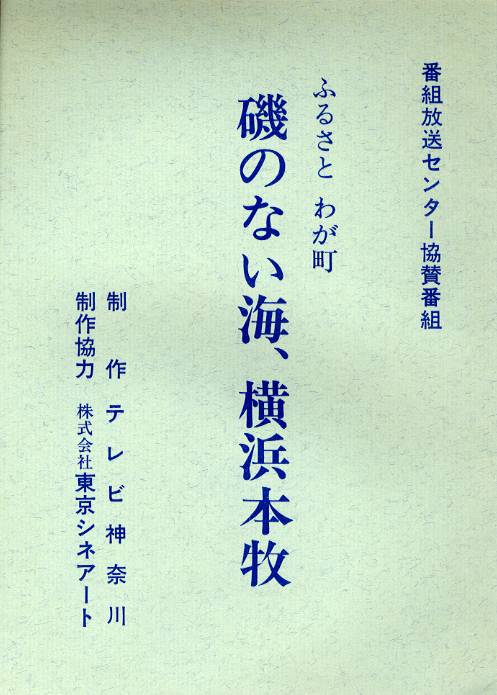 番組放送センター協賛番組
ふるさと わが町
磯のない海、横浜本牧
制作 テレビ神奈川
制作協力 株式会社東京シネアート